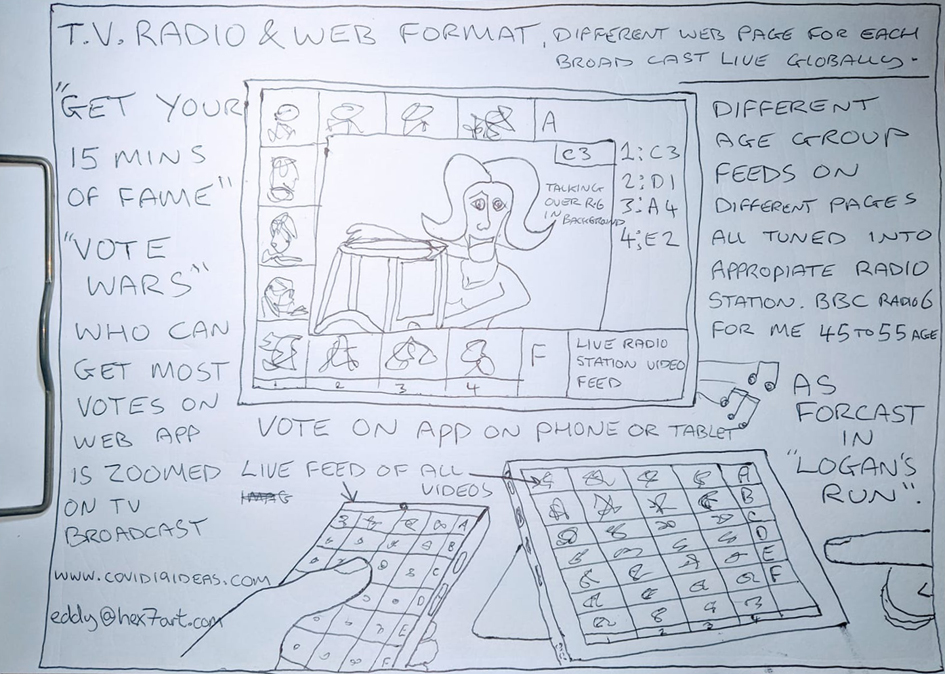 T.V. RADIO & WEB FORMAT. DIFFERENT WEB PAGE FOR EACH
BROADCAST LIVE GLOBALLY.
"GET YOUR
15 MINS
OF FAME"
"VOTE
WARS"
WHO CAN
GET MOST
VOTES ON
WEB APP
IS ZOOMED
ON TV
BROADCAST
www.covid19ideas.com
eddy@hex7art.com
A
C3
TALKING
OVER
IN BACKGROUND
1: C3
2: D1
3: A4
4: E2
F
1 2 3 4
LIVE RADIO
STATION VIDEO
FEED
DIFFERENT
AGE GROUP
FEEDS ON
DIFFERENT PAGES
ALL TUNED INTO
APPROPIATE RADIO
STATION. BBC RADIO 6
FOR ME 45 TO 55 AGE
AS
FORCAST
IN
"LOGAN'S
RUN".
VOTE ON APP ON PHONE OR TABLET
LIVE FEED OF ALL
VIDEOS
A
B
C
D
E
F
A
B
C
D
E
F
1 2 3 4